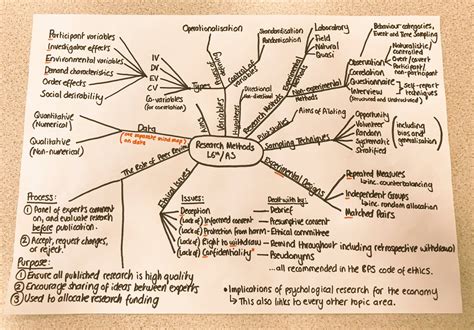 Participant variables
Investigator effects
Environmental variables
Demand characteristics
Order effects
Social desirability
IV
DV
EV
CV
Co-variables
(for correlation)
Types
Operationalisation
Control of
variables
Standardisation
Randomisation
Aims
Variables
Hypotheses
Directional
Non-directional
Experimental
Methods
Laboratory
Field
Natural
Quasi
Non-experimental
Methods
Behaviour categories,
Event and Time Sampling
Observation
Correlation
Questionnaire
Interview
Naturalistic/
controlled
Overt/covert
Participant/
non-participant
self-report
techniques
(Structured and Unstructured)
Quantitative
(Numerical)
Qualitative
(Non-numerical)
Data
(see separate mind map
on data)
Research Methods
L6th/AS
Pilot Studies
Aims of Piloting
Sampling Techniques
Opportunity
Volunteer
Random
Systematic
Stratified
including
bias and
generalisation
Experimental Designs
Repeated Measures
inc. counterbalancing
Independent Groups
inc. random allocation
Matched Pairs
The Role of Peer Review
Process:
① Panel of experts comment
on, and evaluate research
before publication.
② Accept, request changes,
or reject.
Purpose:
① Ensure all published research is high quality
② Encourage sharing of ideas between experts
③ Used to allocate research funding
Ethical Issues
Issues:
Deception
(Lack of) Informed consent
(Lack of) Protection from harm
(Lack of) Right to withdraw
(Lack of) Confidentiality
Dealt with by:
Debrief
Presumptive consent
Ethical committee
Remind throughout including retrospective withdrawal
Pseudonyms
...all recommended in the BPS code of ethics.
• Implications of psychological research for the economy
↳ This also links to every other topic area.